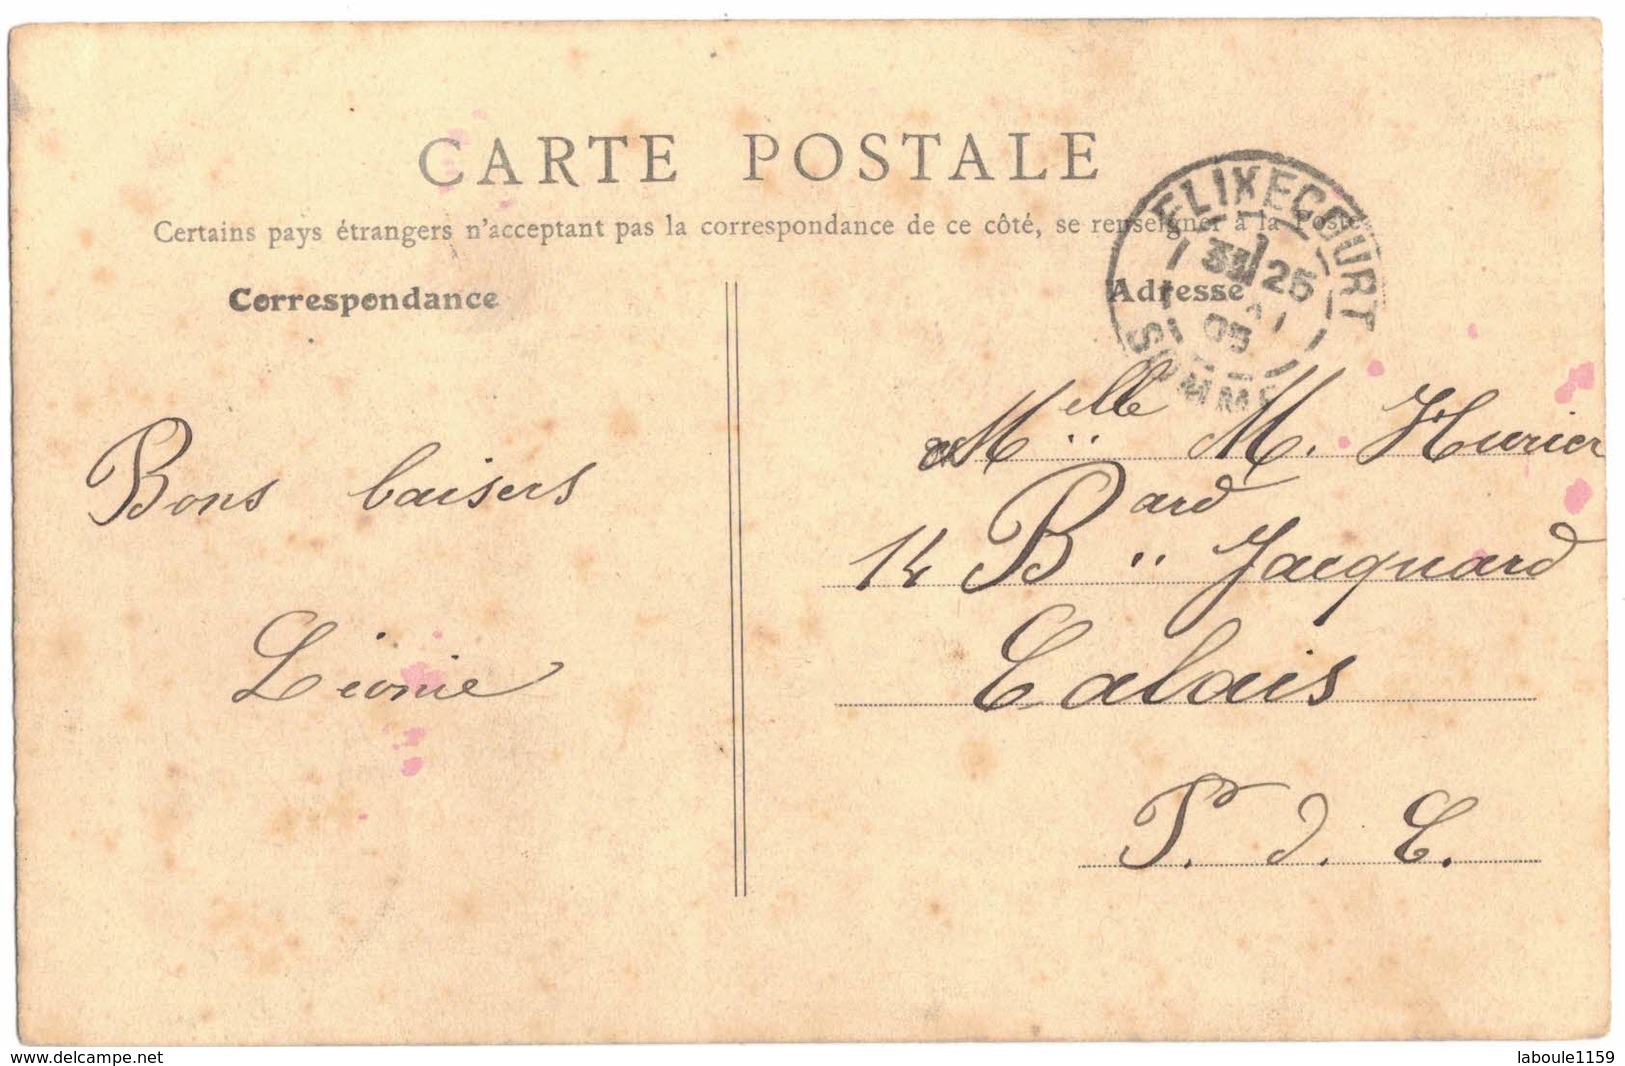 CARTE POSTALE
Certains pays étrangers n'acceptent pas la correspondance de ce côté, se renseigner à la Poste
Correspondance
Adresse
FLIXECOURT
25
05
SOMME
Bons baisers
Léonie
Melle M. Hurier
14 Bard Jacquard
Calais
P. d. C.
www.delcampe.net
laboule1159